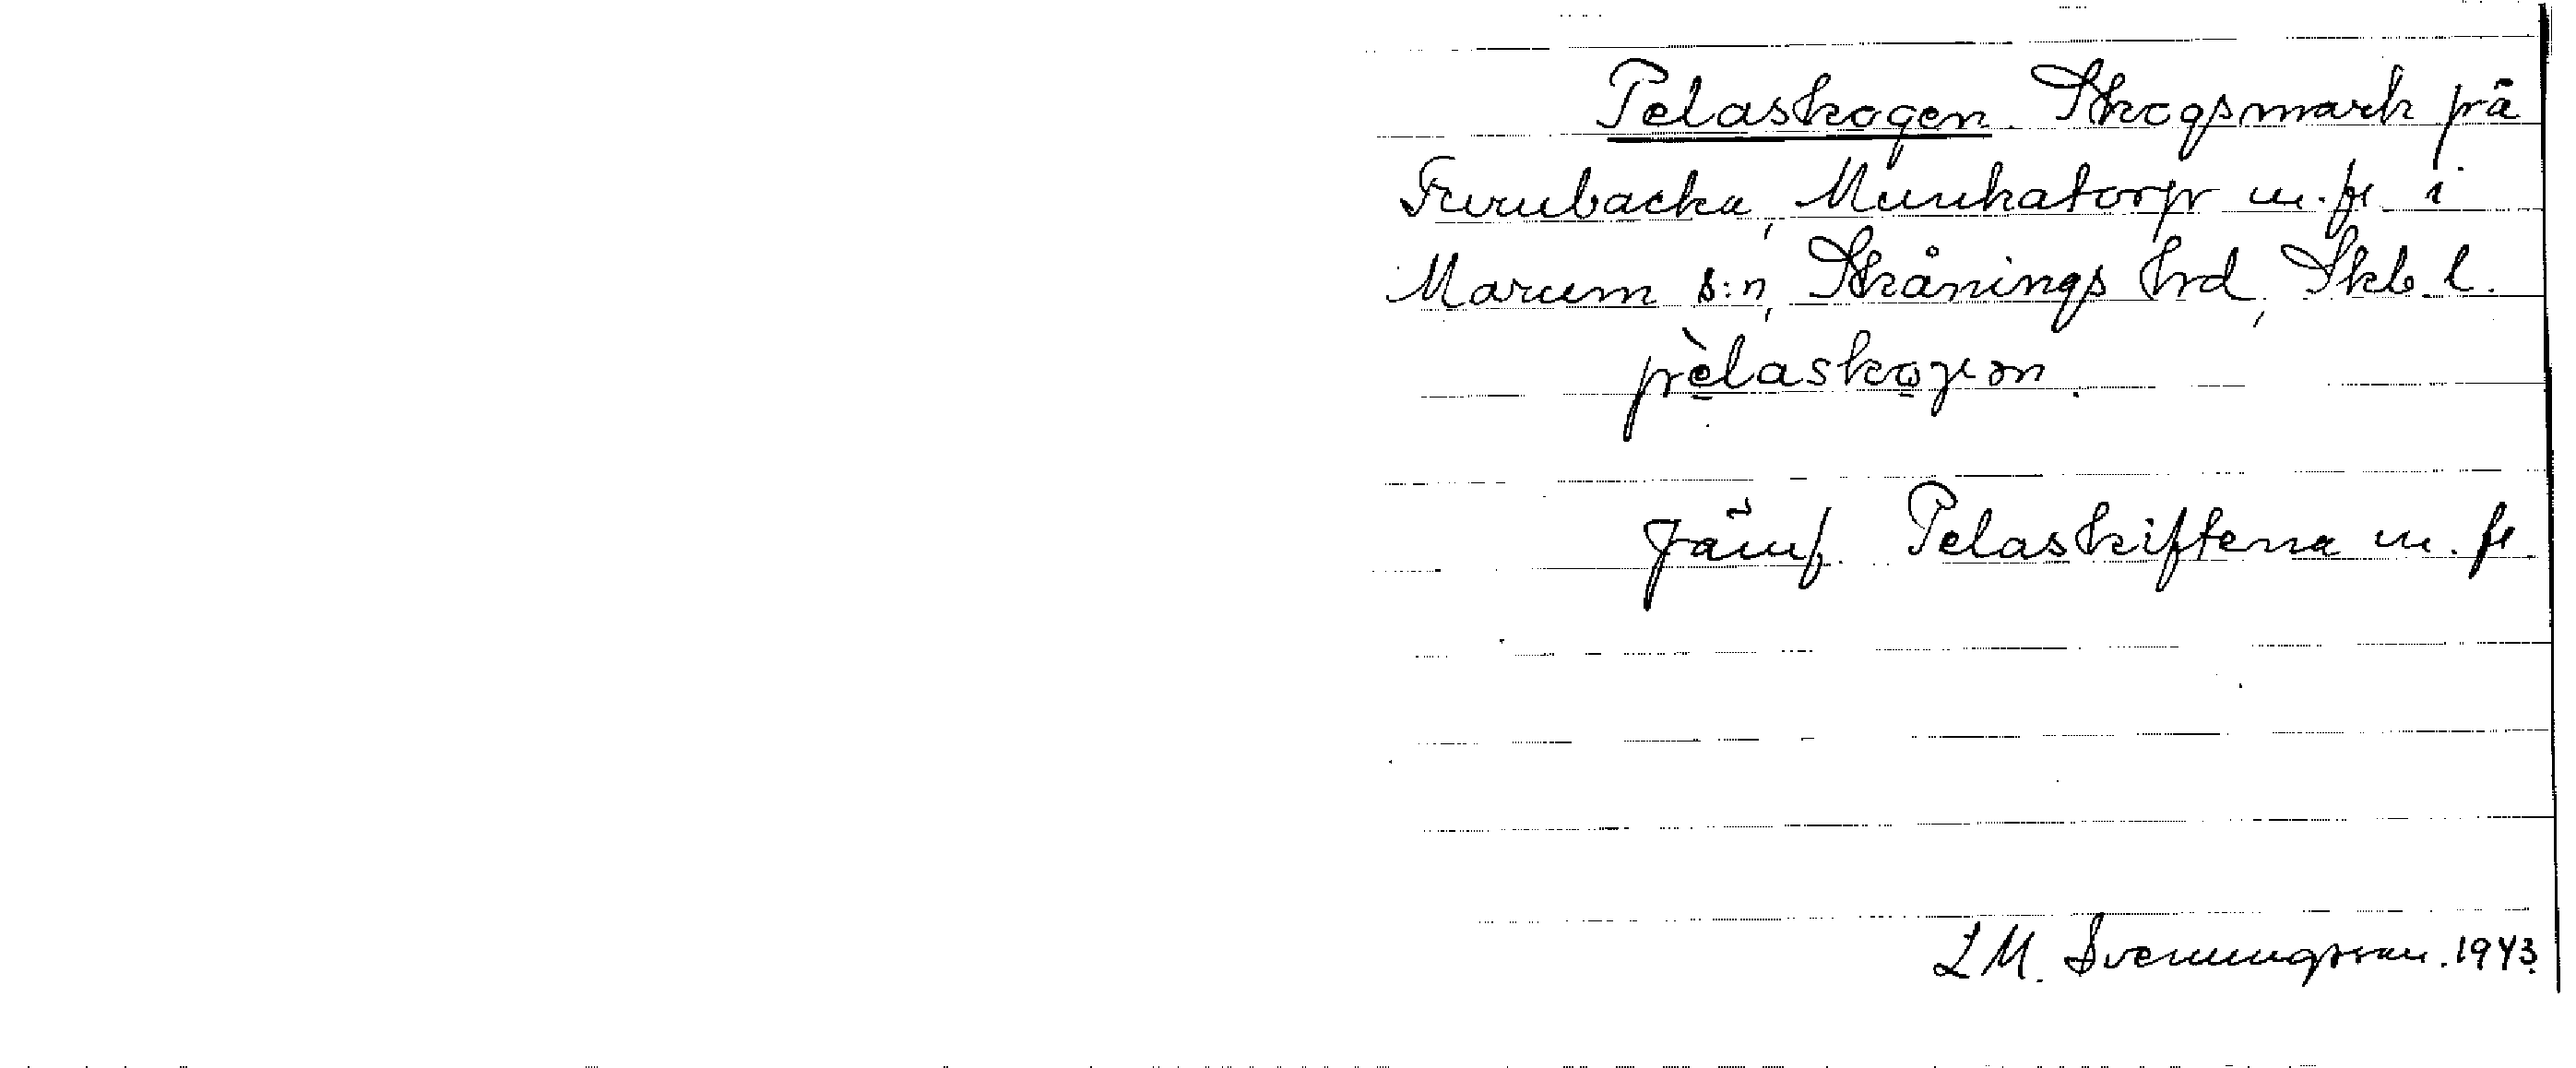 Pelaskogen. Skogsmark på
Furubacka, Munkatorp m.fl i
Marum s:n, Skånings hrd, Skb. l.
pèlaskogen.
Jämf. Pelaskiftena m. fl.
L M. Svenningsson. 1943.